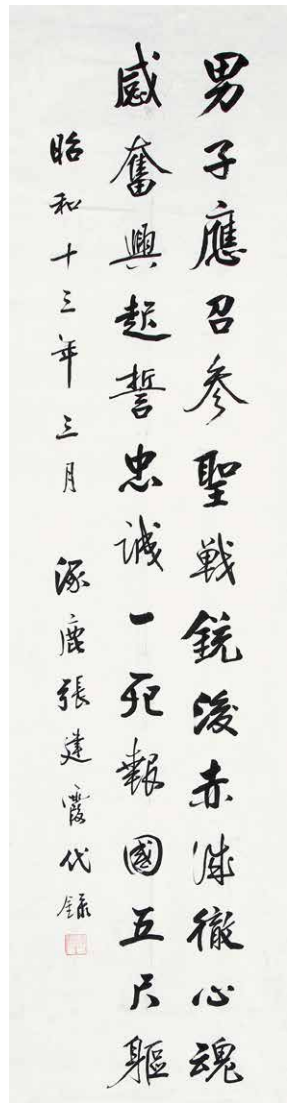 男子應召參聖戦銃後赤誠徹心魂
感奮興起誓忠誠一死報國五尺軀
昭和十三年三月 涿鹿張建霞代錄